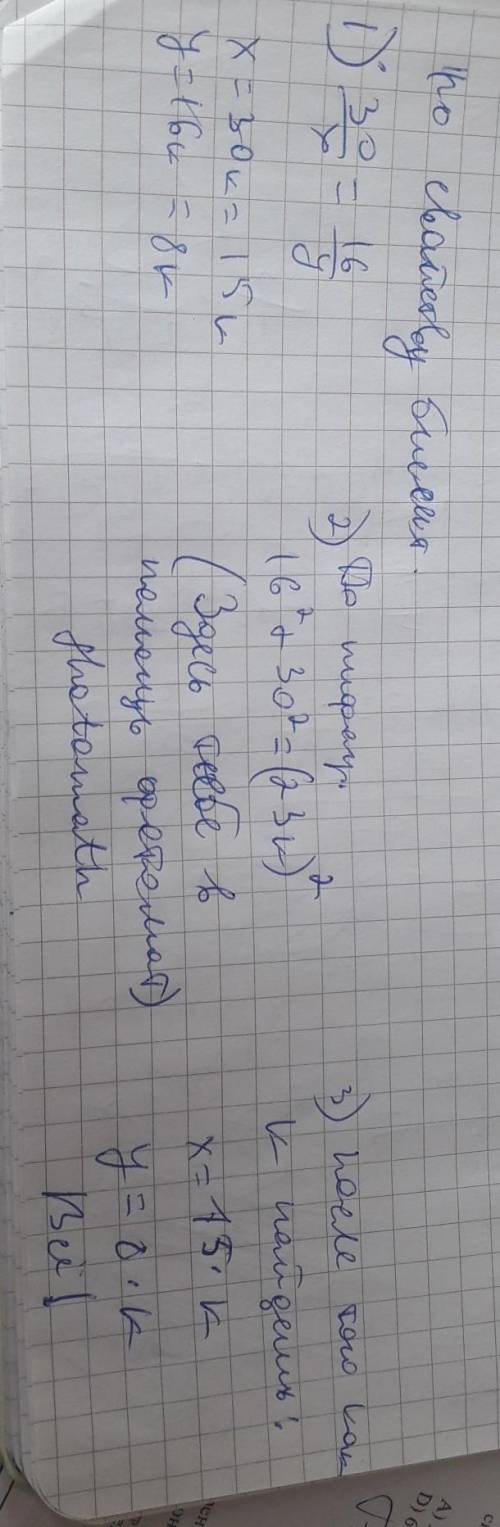 по свойству биссект.
1) 30/x = 16/y
x = 30к = 15к
y = 16к = 8к
2) По пифагу.
16² + 30² = (23к)²
(Здесь тебе в
помощь фотомат)
Photomath
3) после того как
к найдешь:
x = 15 · к
y = 8 · к
Всё!